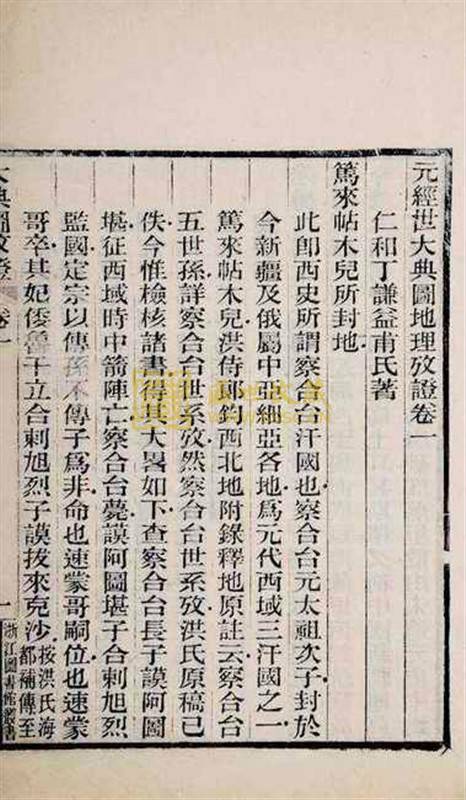 元經世大典圖地理攷證卷一
仁和丁謙益甫氏著
篤來帖木兒所封地
此卽西史所謂察合台汗國也察合台元太祖次子封於
今新疆及俄屬中亞細亞各地爲元代西域三汗國之一
篤來帖木兒洪侍郎鈞西北地附錄釋地原註云察合台
五世孫詳察合台世系攷然察合台世系攷洪氏原稿已
佚今惟檢核諸書得其大畧如下查察合台長子謨阿圖
堪征西域時中箭陣亡察合台薨謨阿圖堪子合剌旭烈
監國定宗以傳孫不傳子爲非命也速蒙哥嗣位也速蒙
哥卒其妃倭魯干立合剌旭烈子謨拔來克沙
按洪氏海
都補傳至
大典圖攷證 卷一
一
浙江圖書館叢書